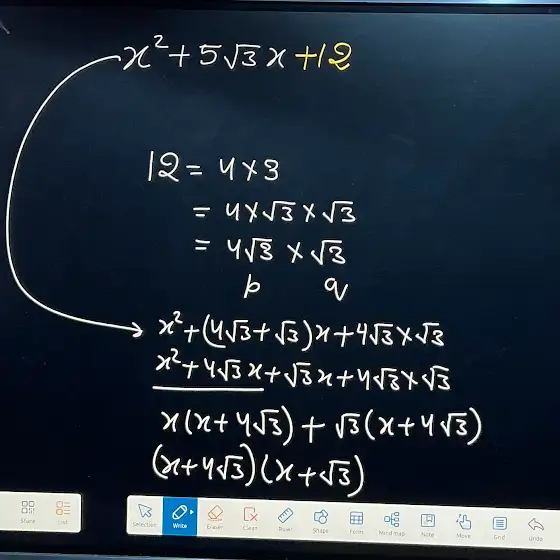 x² + 5√3 x + 12
12 = 4 × 3
= 4 × √3 × √3
= 4√3 × √3
p q
x² + (4√3 + √3) x + 4√3 × √3
x² + 4√3 x + √3 x + 4√3 × √3
x (x + 4√3) + √3 (x + 4√3)
(x + 4√3) (x + √3)
Share List Selection Write Eraser Clean Ruler Shape Form Mind map Note Move Grid Undo